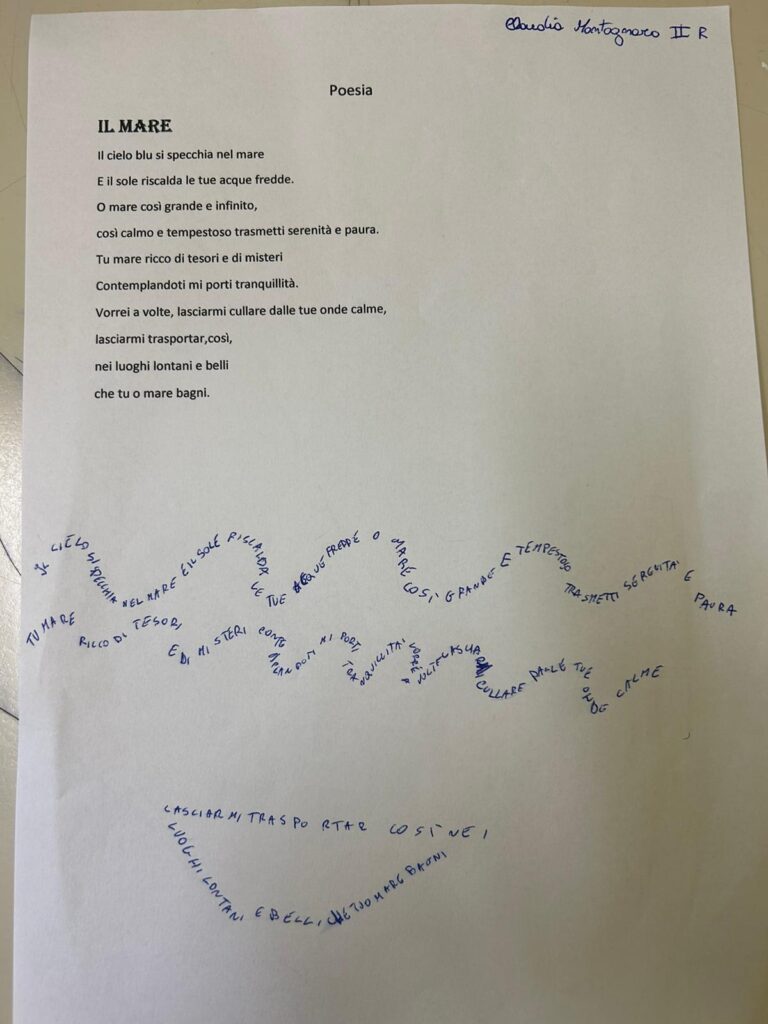 Claudia Montagnaro II R
Poesia
IL MARE
Il cielo blu si specchia nel mare
E il sole riscalda le tue acque fredde.
O mare così grande e infinito,
così calmo e tempestoso trasmetti serenità e paura.
Tu mare ricco di tesori e di misteri
Contemplandoti mi porti tranquillità.
Vorrei a volte, lasciarmi cullare dalle tue onde calme,
lasciarmi trasportar,così,
nei luoghi lontani e belli
che tu o mare bagni.
IL CIELO SI SPECCHIA NEL MARE E IL SOLE RISCALDA LE TUE ACQUE FREDDE O MARE COSÌ GRANDE E TEMPESTOSO TRASMETTI SERENITÀ E PAURA
TU MARE RICCO DI TESORI E DI MISTERI CONTEMPLANDOTI MI PORTI TRANQUILLITÀ VORREI A VOLTE LASCIARMI CULLARE DALLE TUE ONDE CALME
LASCIARMI TRASPORTAR COSÌ NEI
LUOGHI LONTANI E BELLI CHE TU O MARE BAGNI